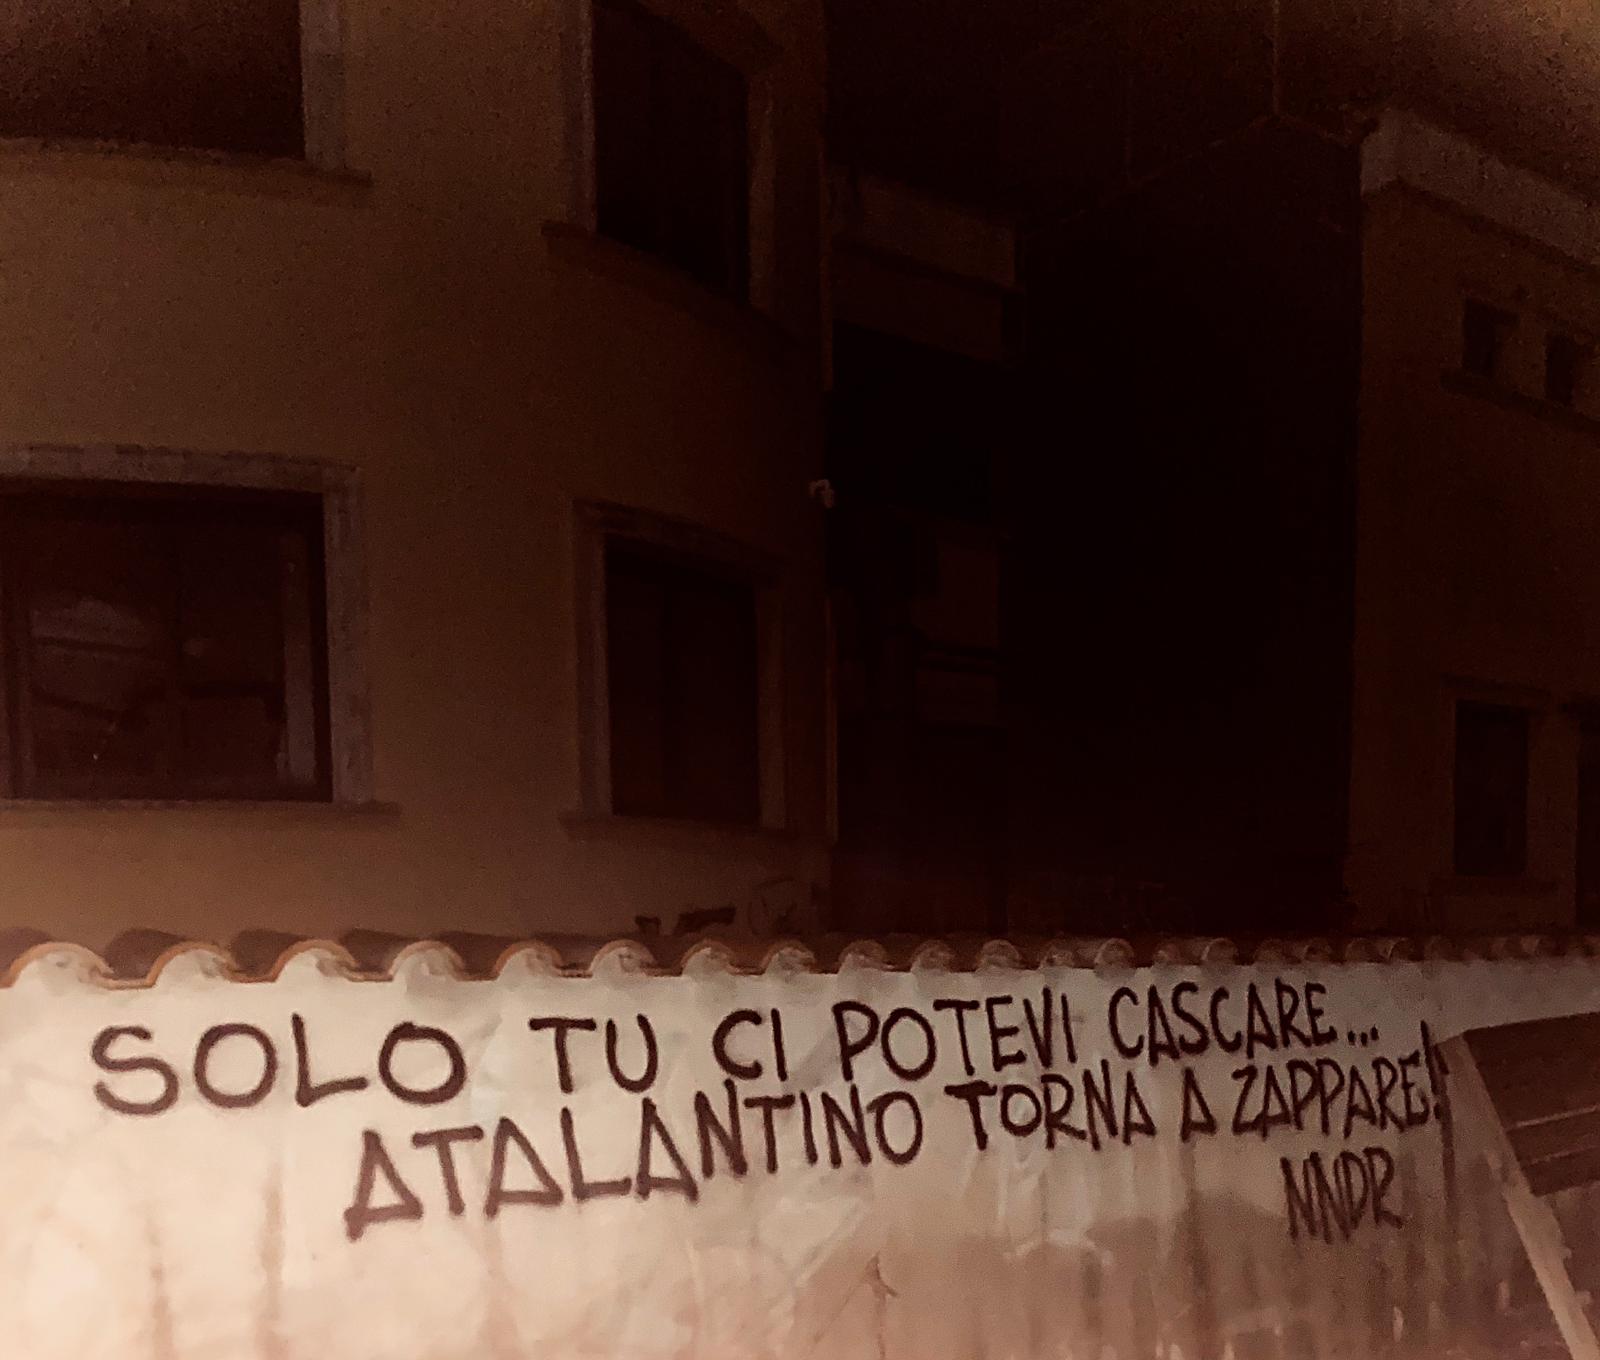 SOLO TU CI POTEVI CASCARE...
ATALANTINO TORNA A ZAPPARE!
NNDR